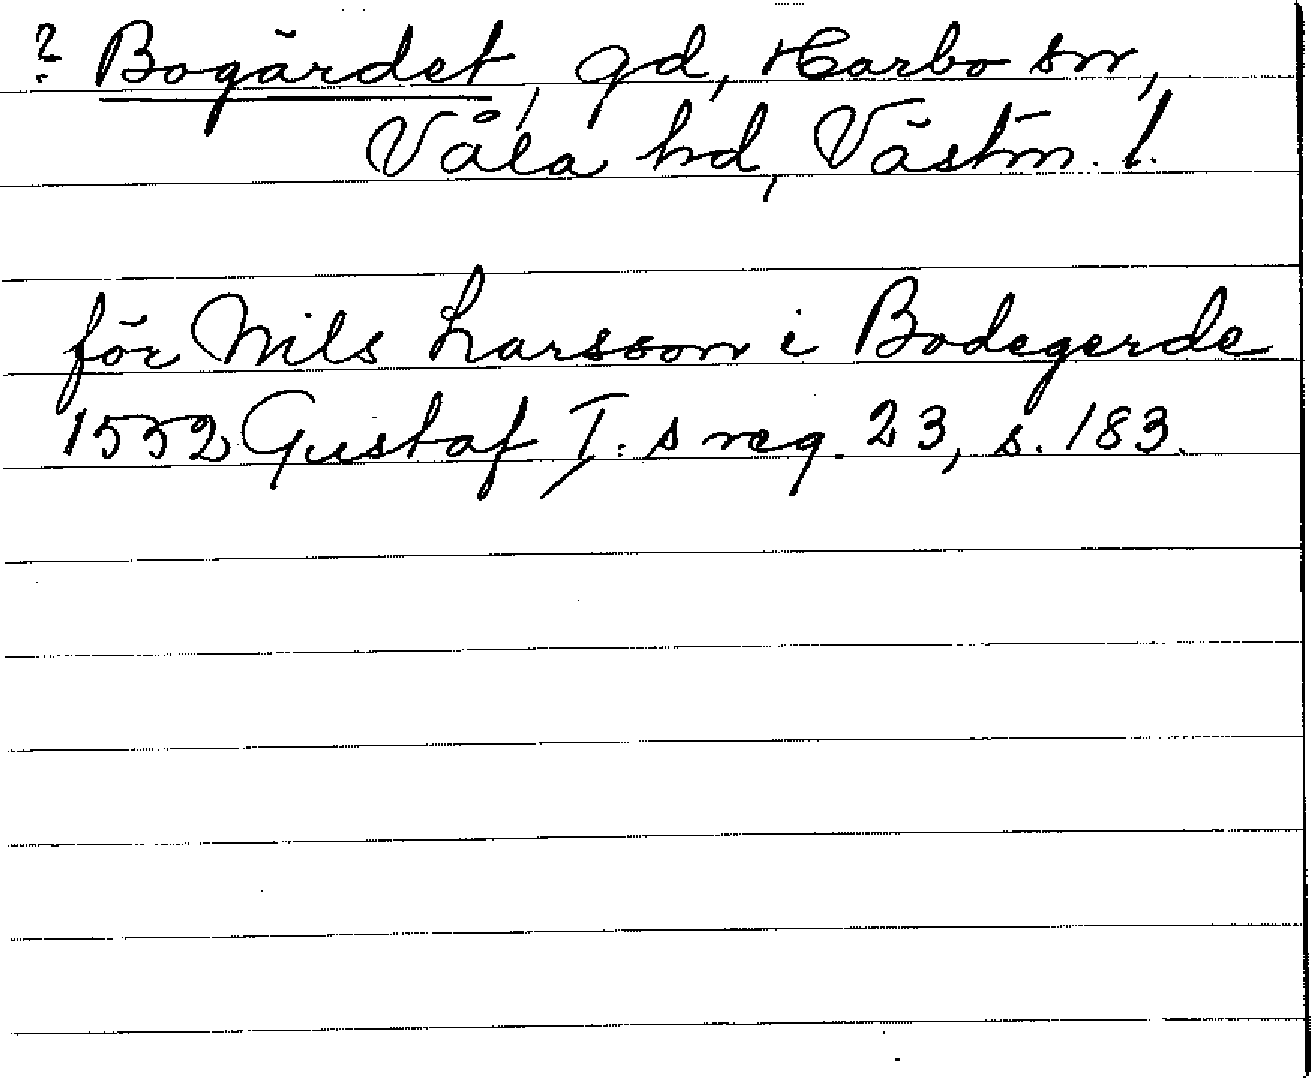 ? Bogärdet, gd, Harbo sn,
Våla hd, Västm. l.
för Nils Larsson i Bodegerde
1552 Gustaf I:s reg. 23, s. 183.